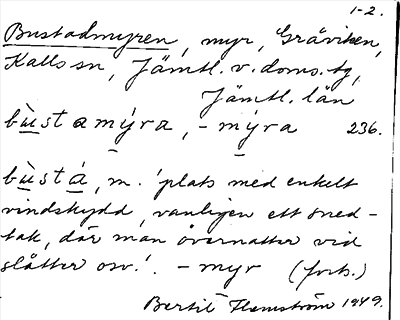 1-2.
Bustadmyren, myr, Gråviken,
Kalls sn, Jämtl. v. doms. tg,
Jämtl. län
bùstamýra, -mýra 236.
bùstá, m. 'plats med enkelt
vindskydd, vanligen ett sned-
tak, där man övernattar vid
slåtter osv.'. - myr (forts.)
Bertil Flemström 1949.